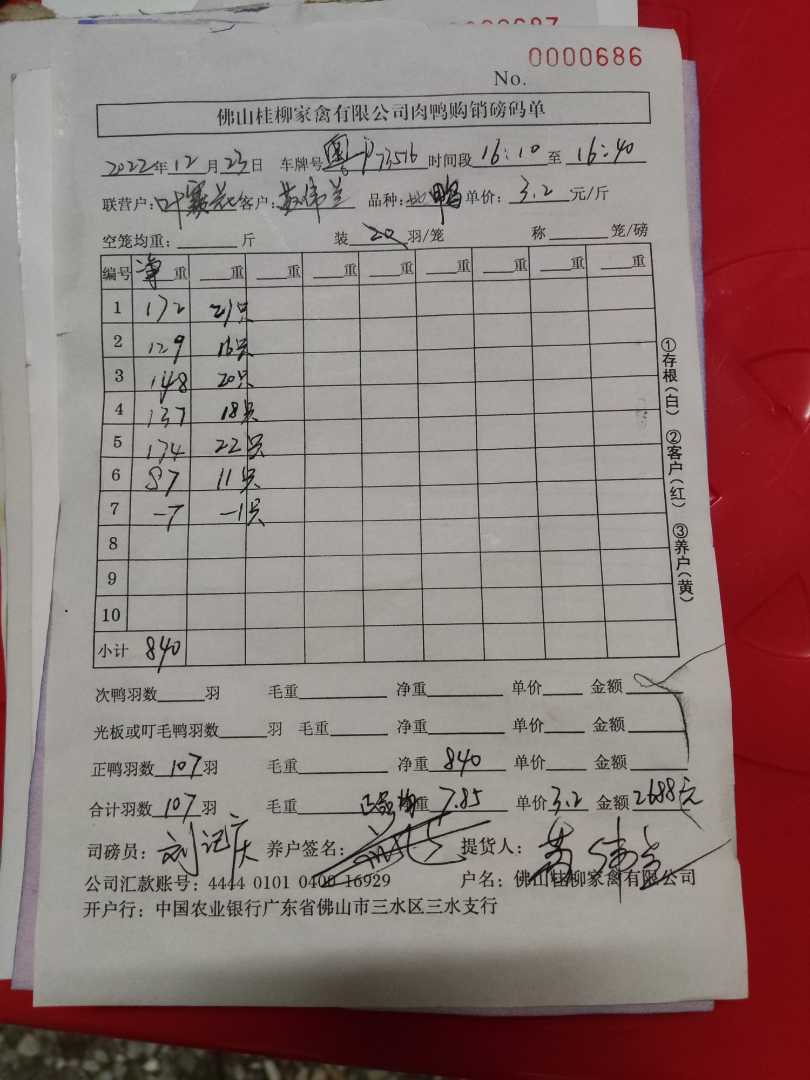 0000687
No. 0000686
佛山桂柳家禽有限公司肉鸭购销磅码单
2022年12月23日 车牌号粤P73516 时间段16:10至16:40
联营户: 客户: 品种: 鸭 单价:3.2元/斤
空笼均重: 斤 装20羽/笼 称 笼/磅
编号 净重 重 重 重 重 重 重 重 重
1 172 21只
2 129 16只
3 148 20只
4 137 18只
5 174 22只
6 87 11只
7 -7 -1只
8
9
10
小计 840
①存根(白) ②客户(红) ③养户(黄)
次鸭羽数 羽 毛重 净重 单价 金额
光板或叮毛鸭羽数 羽 毛重 净重 单价 金额
正鸭羽数107羽 毛重 净重840 单价 金额
合计羽数107羽 毛重 均重7.85 单价3.2 金额2688元
司磅员: 养户签名: 提货人:
公司汇款账号: 4444 0101 0400 16929 户名: 佛山桂柳家禽有限公司
开户行: 中国农业银行广东省佛山市三水区三水支行